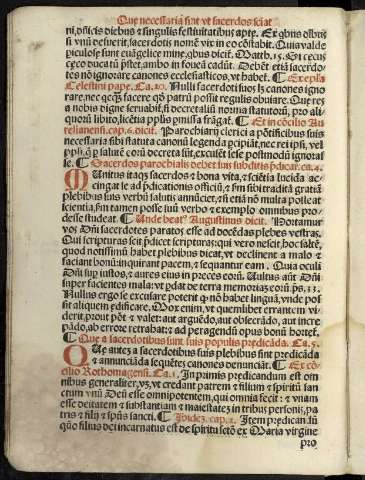 Que necessaria sint vt sacerdos sciat
ni, dn̄icis diebus ⁊ singulis festiuitatibus apte. Ex qbus oībus
si vnū defuerit, sacerdotis nomē vix in eo cōstabit. Quia valde
piculose sunt euāgelice mine, qbus dicit. Matth. 15. Si cecus
ceco ducatū p̄stet, ambo in foueā cadūt. Debēt etiā sacerdo
tes nō ignorare canones ecclesiasticos, vt habet. ¶ Ex epl'a
Celestini pape. Ca. 20. Nulli sacerdoti suos lz canones igno
rare, nec qcq̄ facere qd̄ patrū possit regulis obuiare. Que res
a nobis digne seruabit, si decretaliū norma statutorū, pro ali
quorū libito, licētia pplis pmissa frāgat. ¶ Et in cōcilio Au
relianensi. cap. 6. dicit. Parochiarij clerici a pōtificibus suis
necessaria sibi statuta canonū legenda pcipiāt, nec rei ipsi, vel
ppli, q̄ p salute eorū decreta sūt, excuset se se postmodū ignotal
le. ¶ Sacerdos parochialis debet suis subditis p̄dicar. ca. 4.
MUnitus itaqz sacerdos ⁊ bona vita, ⁊ sciētia lucida ac
cingat le ad p̄dicationis officiū, ⁊ fm̄ sibi traditā gratiā
plebibus suis verbū salutis annūciet, ⁊ si etiā nō multa polleat
scientia, fm̄ tamen posse suū verbo ⁊ exemplo omnibus pro-
desse studeat. ¶ Unde beat? Augustinus dicit. Hortamur
vos Dn̄i sacerdotes paratos esse ad docēdas plebes vestras.
Qui scripturas scit p̄dicet scripturas: qui vero nescit, hoc saltē,
quod notissimū habet plebibus dicat, vt declinent a malo ⁊
faciant bonū: inquirant pacem, ⁊ sequantur eam. Quia oculi
Dn̄i sup iustos, ⁊ aures eius in preces eorū. Uultus aūt Dn̄i
super facientes mala: vt pdat de terra memoriā eorū. ps. 13.
Nullus ergo se excusare poterit qd̄ nō habet linguā, vnde pos
sit aliquem edificare. Mox enim, vt quemlibet errantem vi-
derit, prout pōt ⁊ valet: aut arguēdo, aut obsecrādo, aut incre
pādo, ab errore retrahat: ⁊ ad peragendū opus bonū hortet.
¶ Que a sacerdotibus sunt suis populis predicāda. Ca. 5.
QUe autez a sacerdotibus suis plebibus sint predicāda
⁊ annuncianda sequētes canones denunciāt. ¶ Ex cō-
cilio Rothomagensi. Ca. 1. In primis predicandum est om
nibus generaliter, vz, vt credant patrem ⁊ filium ⁊ spiritū san
ctum vnū Deū esse omnipotentem, qui omnia fecit: ⁊ vnam
esse deitatem ⁊ substantiam ⁊ maiestatez in tribus personis, pa
tris ⁊ filij ⁊ spūs sancti. ¶ Ibidez. cap. 2. Item predican̄. un̄
quō filius dei incarnatus est de spiritu sctō ex Maria virgine
pro